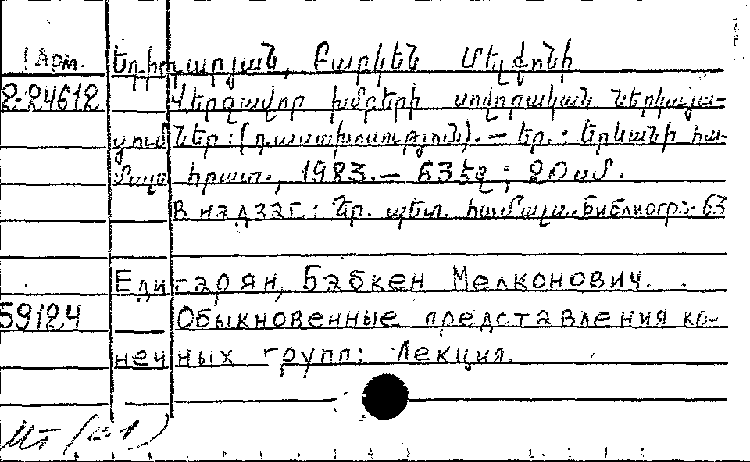 1 Арм. Եդիգարյան, Բաբկեն Մելքոնի
2-24612 Վերջավոր խմբերի սովորական ներկայա-
ցումներ: (դասախոսություն). — Եր.: Երևանի հա-
մալս. հրատ., 1983. — 63 էջ ; 20 սմ.
В надзаг.: Եր. պետ. համալս. Библиогр.: 63
Едигарян, Бабкен Мелконович.
59124 Обыкновенные представления ко-
нечных групп: Лекция.